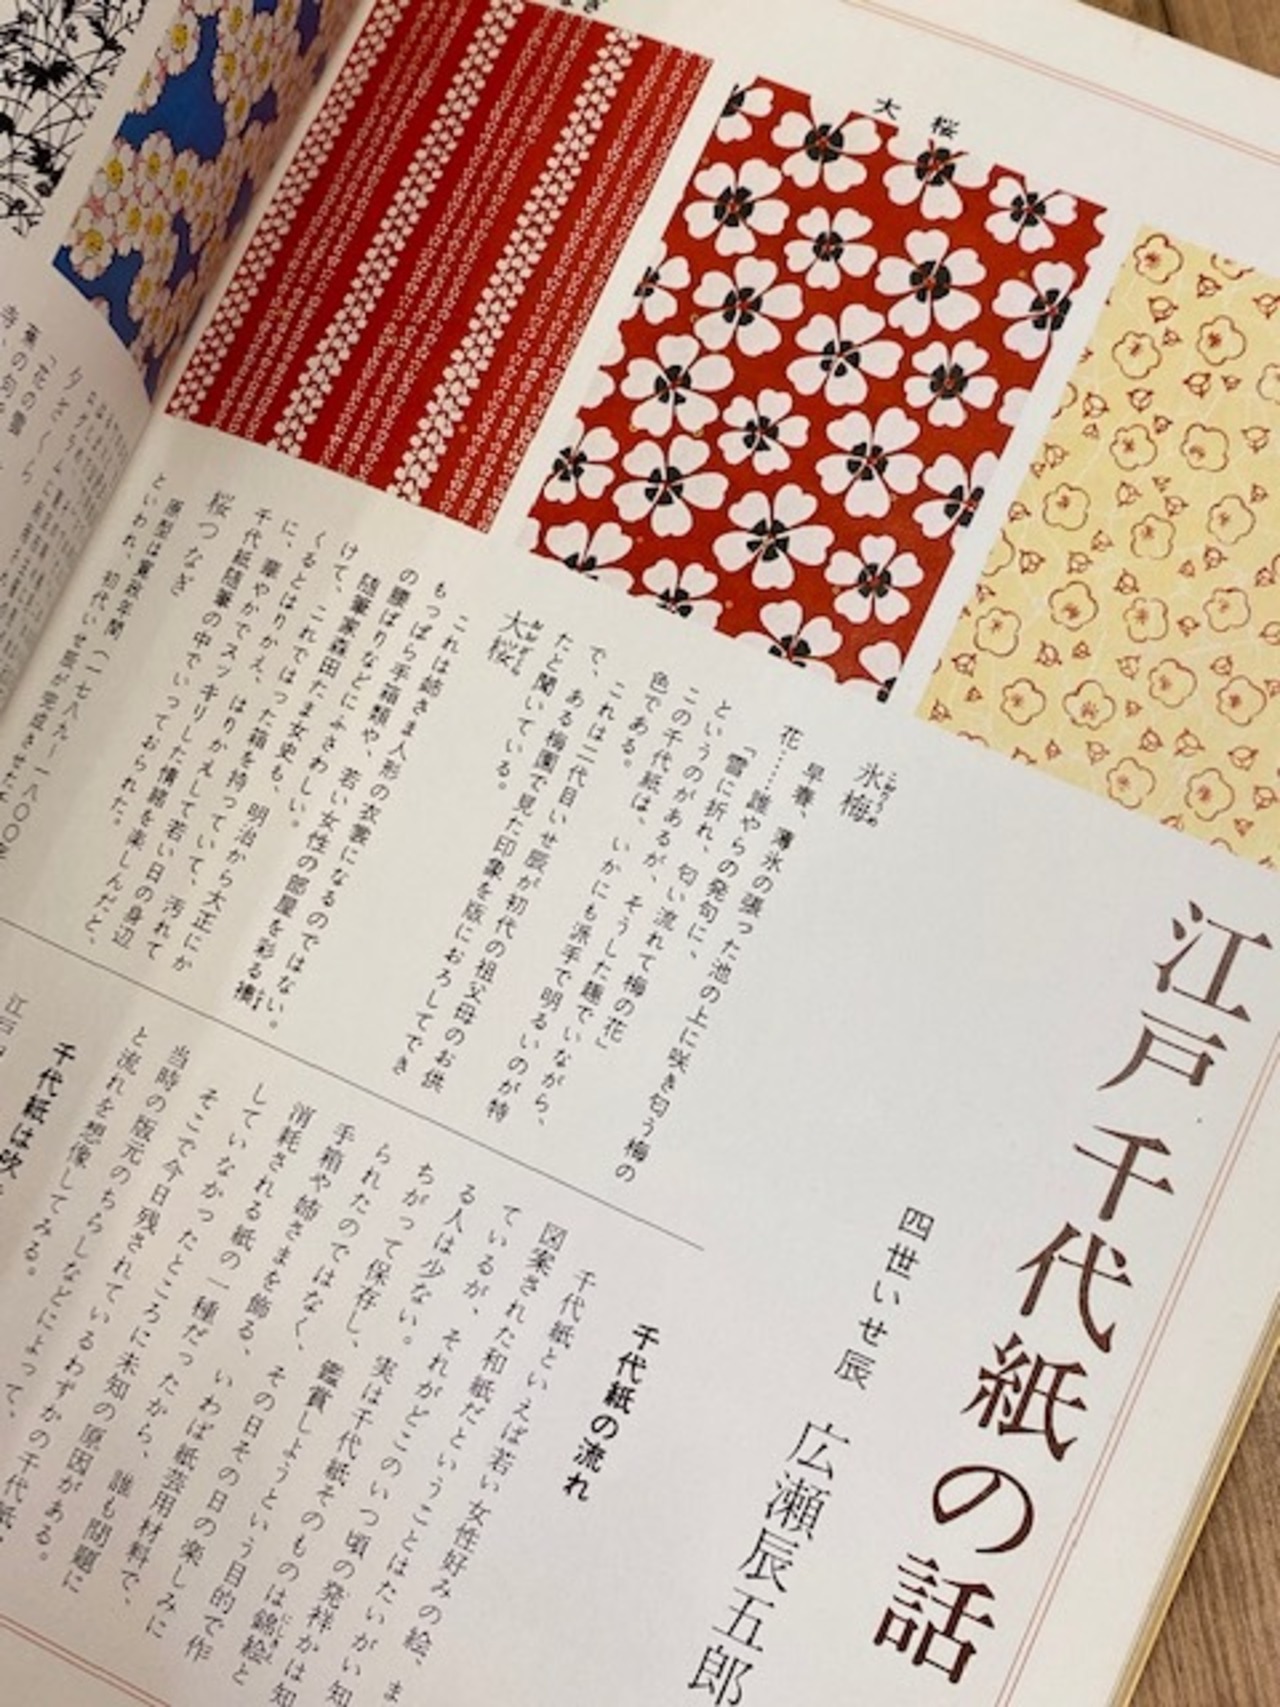 大桜
江戸千代紙の話
四世いせ辰 広瀬辰五郎
氷梅
こおりうめ
早春、薄氷の張った池の上に咲き匂う梅の
花……誰やらの発句に、
「雪に折れ、匂い流れて梅の花」
というのがあるが、そうした趣でいながら、
この千代紙は、いかにも派手で明るいのが特
色である。
これは二代目いせ辰が初代の祖父母のお供
で、ある梅園で見た印象を版におろしてでき
たと聞いている。
大桜
おおざくら
これは姉さま人形の衣裳になるのではない。
もっぱら手箱類や、若い女性の部屋を彩る襖
ふすま
の腰ばりなどにふさわしい。
随筆家森田たま女史も、明治から大正にか
けて、これではった箱を持っていて、汚れて
くるとはりかえ、はりかえして若い日の身辺
に、華やかでスッキリした情緒を楽しんだと、
千代紙随筆の中でいっておられた。
桜つなぎ
原型は寛政年間（一七八九～一八〇〇年
といわれ、初代いせ辰が完成させた
千代紙の流れ
千代紙といえば若い女性好みの絵、ま
図案された和紙だということはたいがい知
ているが、それがどこのいつ頃の発祥かは知
る人は少ない。実は千代紙そのものは錦絵と
にしきえ
ちがって保存し、鑑賞しようという目的で作
られたのではなく、その日その日の楽しみに
手箱や姉さまを飾る、いわば紙芸用材料で、
消耗される紙の一種だったから、誰も問題に
していなかったところに未知の原因がある。
そこで今日残されているわずかの千代紙
当時の版元のちらしなどによって、
と流れを想像してみる。
千代紙は吹
江戸
蕉の句
「花の雲